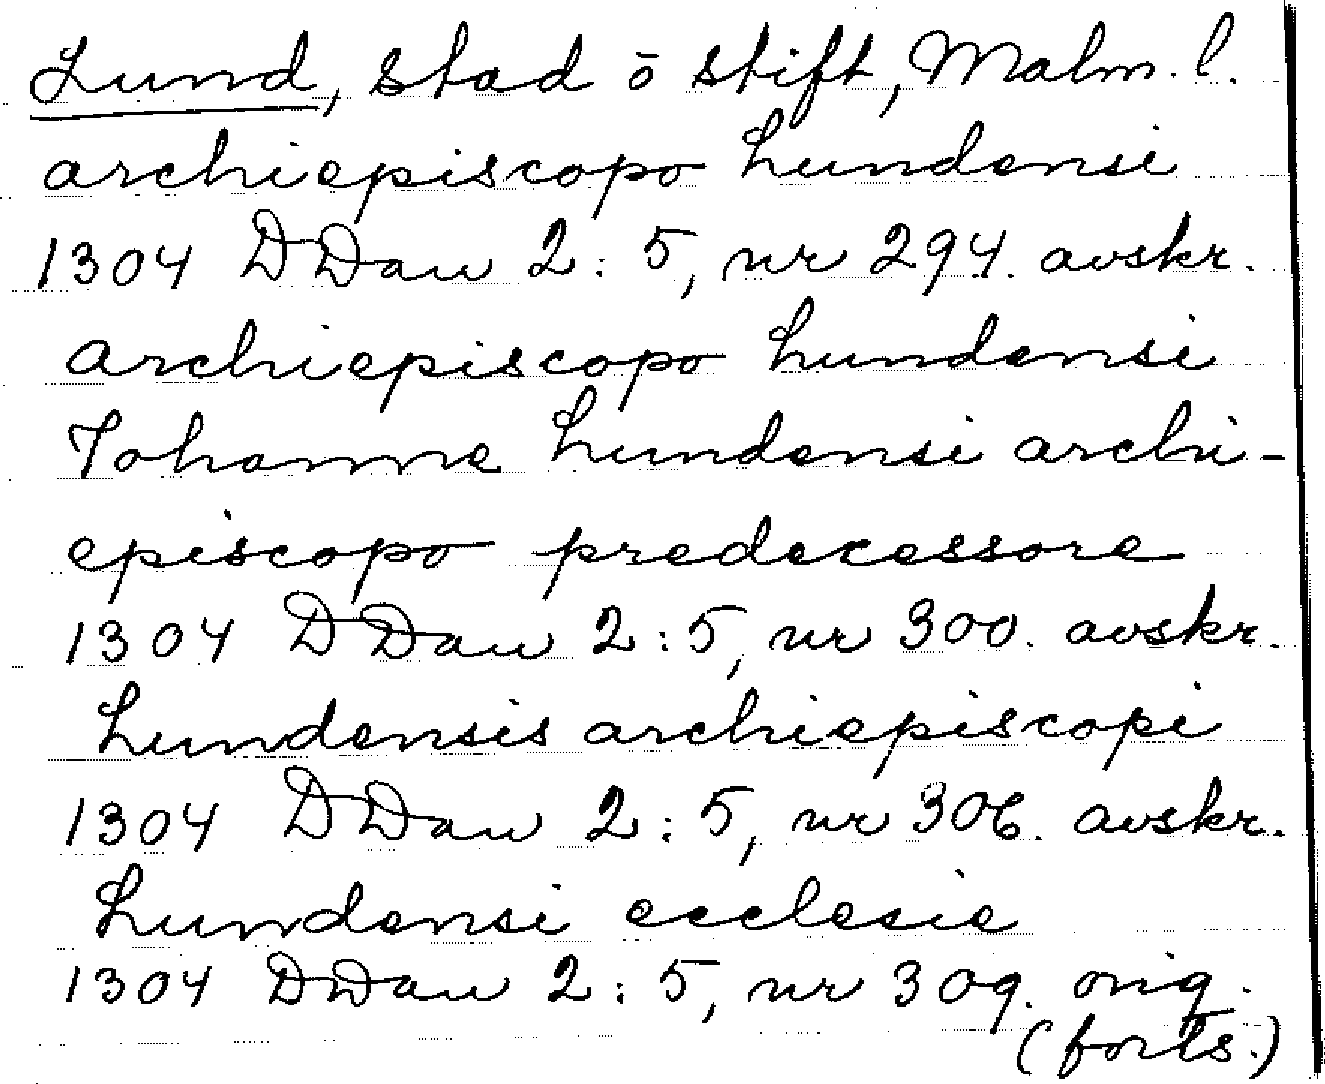 Lund, stad ō stift, Malm. l.
archiepiscopo Lundensi
1304 DDan 2:5, nr 294. avskr.
archiepiscopo Lundensi
Johanne Lundensi archi-
episcopo predecessore
1304 DDan 2:5, nr 300. avskr.
Lundensis archiepiscopi
1304 DDan 2:5, nr 306. avskr.
Lundensi ecclesie
1304 DDan 2:5, nr 309. orig.
(forts.)